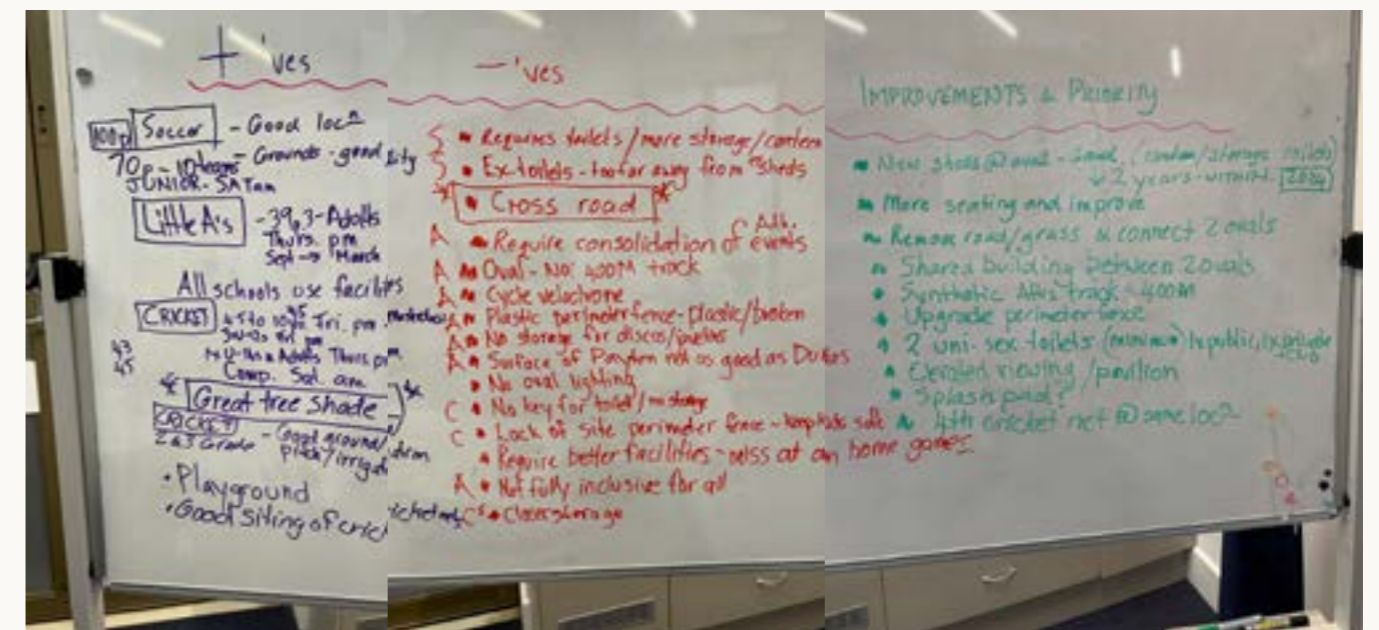 +'ves
100p Soccer - Good locn
70p - 10 teams - Grounds - good
JUNIOR - SAT am
Little A's - 39, 3 - Adults
Thurs. pm
Sept → March
All schools use facilities
CRICKET Fri. pm
43
45
Adults Thurs pm
Comp. Sat. am
* Great tree shade *
CRICKET
2 & 3 Grade - Good ground/
pitch/irrigation
• Playground
• Good siting of cricket nets
-'ves
S • Requires toilets/more storage/canteen
S • Ex toilets - too far away from sheds
* • Cross road *
A • Require consolidation of Ath. events
A • Oval - No 400M track
A • Cycle velodrome
A • Plastic perimeter fence - plastic/broken
A • No storage for discus/javelins
A • Surface of not as good as
• No oval lighting
C • No key for toilet/no storage
C • Lack of site perimeter fence - keep kids safe
• Require better facilities - miss at an home games
A • Not fully inclusive for all
C S • Closer storage
IMPROVEMENTS & Priority
• New sheds @ oval - (canteen/storage toilets)
↓ 2 years - 2024
• More seating and improve
• Remove road/grass & connect 2 ovals
• Shared building between 2 ovals
• Synthetic Aths track - 400M
• Upgrade perimeter fence
• 2 uni-sex toilets (minimum) 1x public, 1x private
club
• Elevated viewing/pavilion
• Splash pad?
• 4th cricket net @ same locn